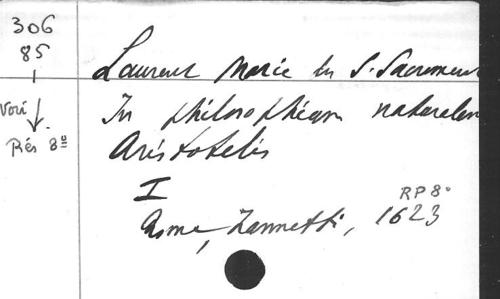 306
85
Laurent Marie du S. Sacrement
Voir
Rés 8º
In philosophiam naturalem
Aristotelis
I
RP 8º
Rome, Zannetti, 1623